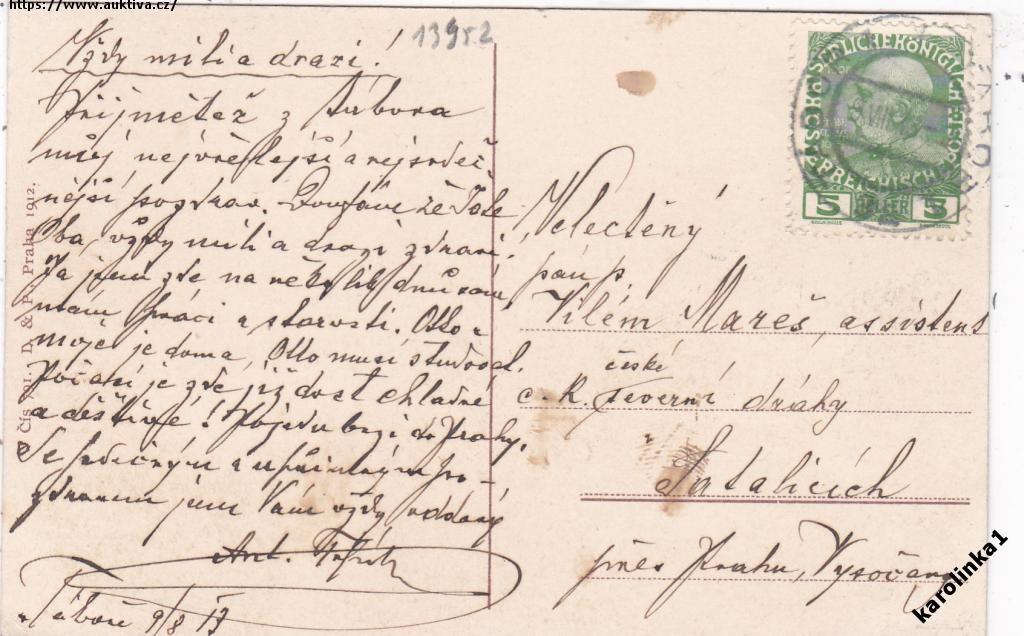 https://www.auktiva.cz/
13952
Vždy milí a drazí!
Přijmětež z Tábora
můj nejvřelejší a nejsrdeč
nější pozdrav. Doufám že Jste
Oba, vždy milí a drazí zdraví.
Já jsem zde na několik dnů sám,
mám práci a starosti. Otto a
moje je doma, Otto musí studovat.
Počasí je zde již dost chladné
a deštivé! Pojedu brzi do Prahy.
Se srdečným a upřímným po-
zdravem jsem Vám vždy oddaný
Ant.
v Táboře 9/8 13
Velectěný
pan p.
Vilém Mareš, assistent
české
c. k. Severní dráhy
Satalicích
přes Prahu, Vysočany
Čís 791. D. & P. Praha 1912.
KAIS. KÖNIGLICHE
ÖSTERREICHISCHE POST
5 HELLER 5
karolinka1